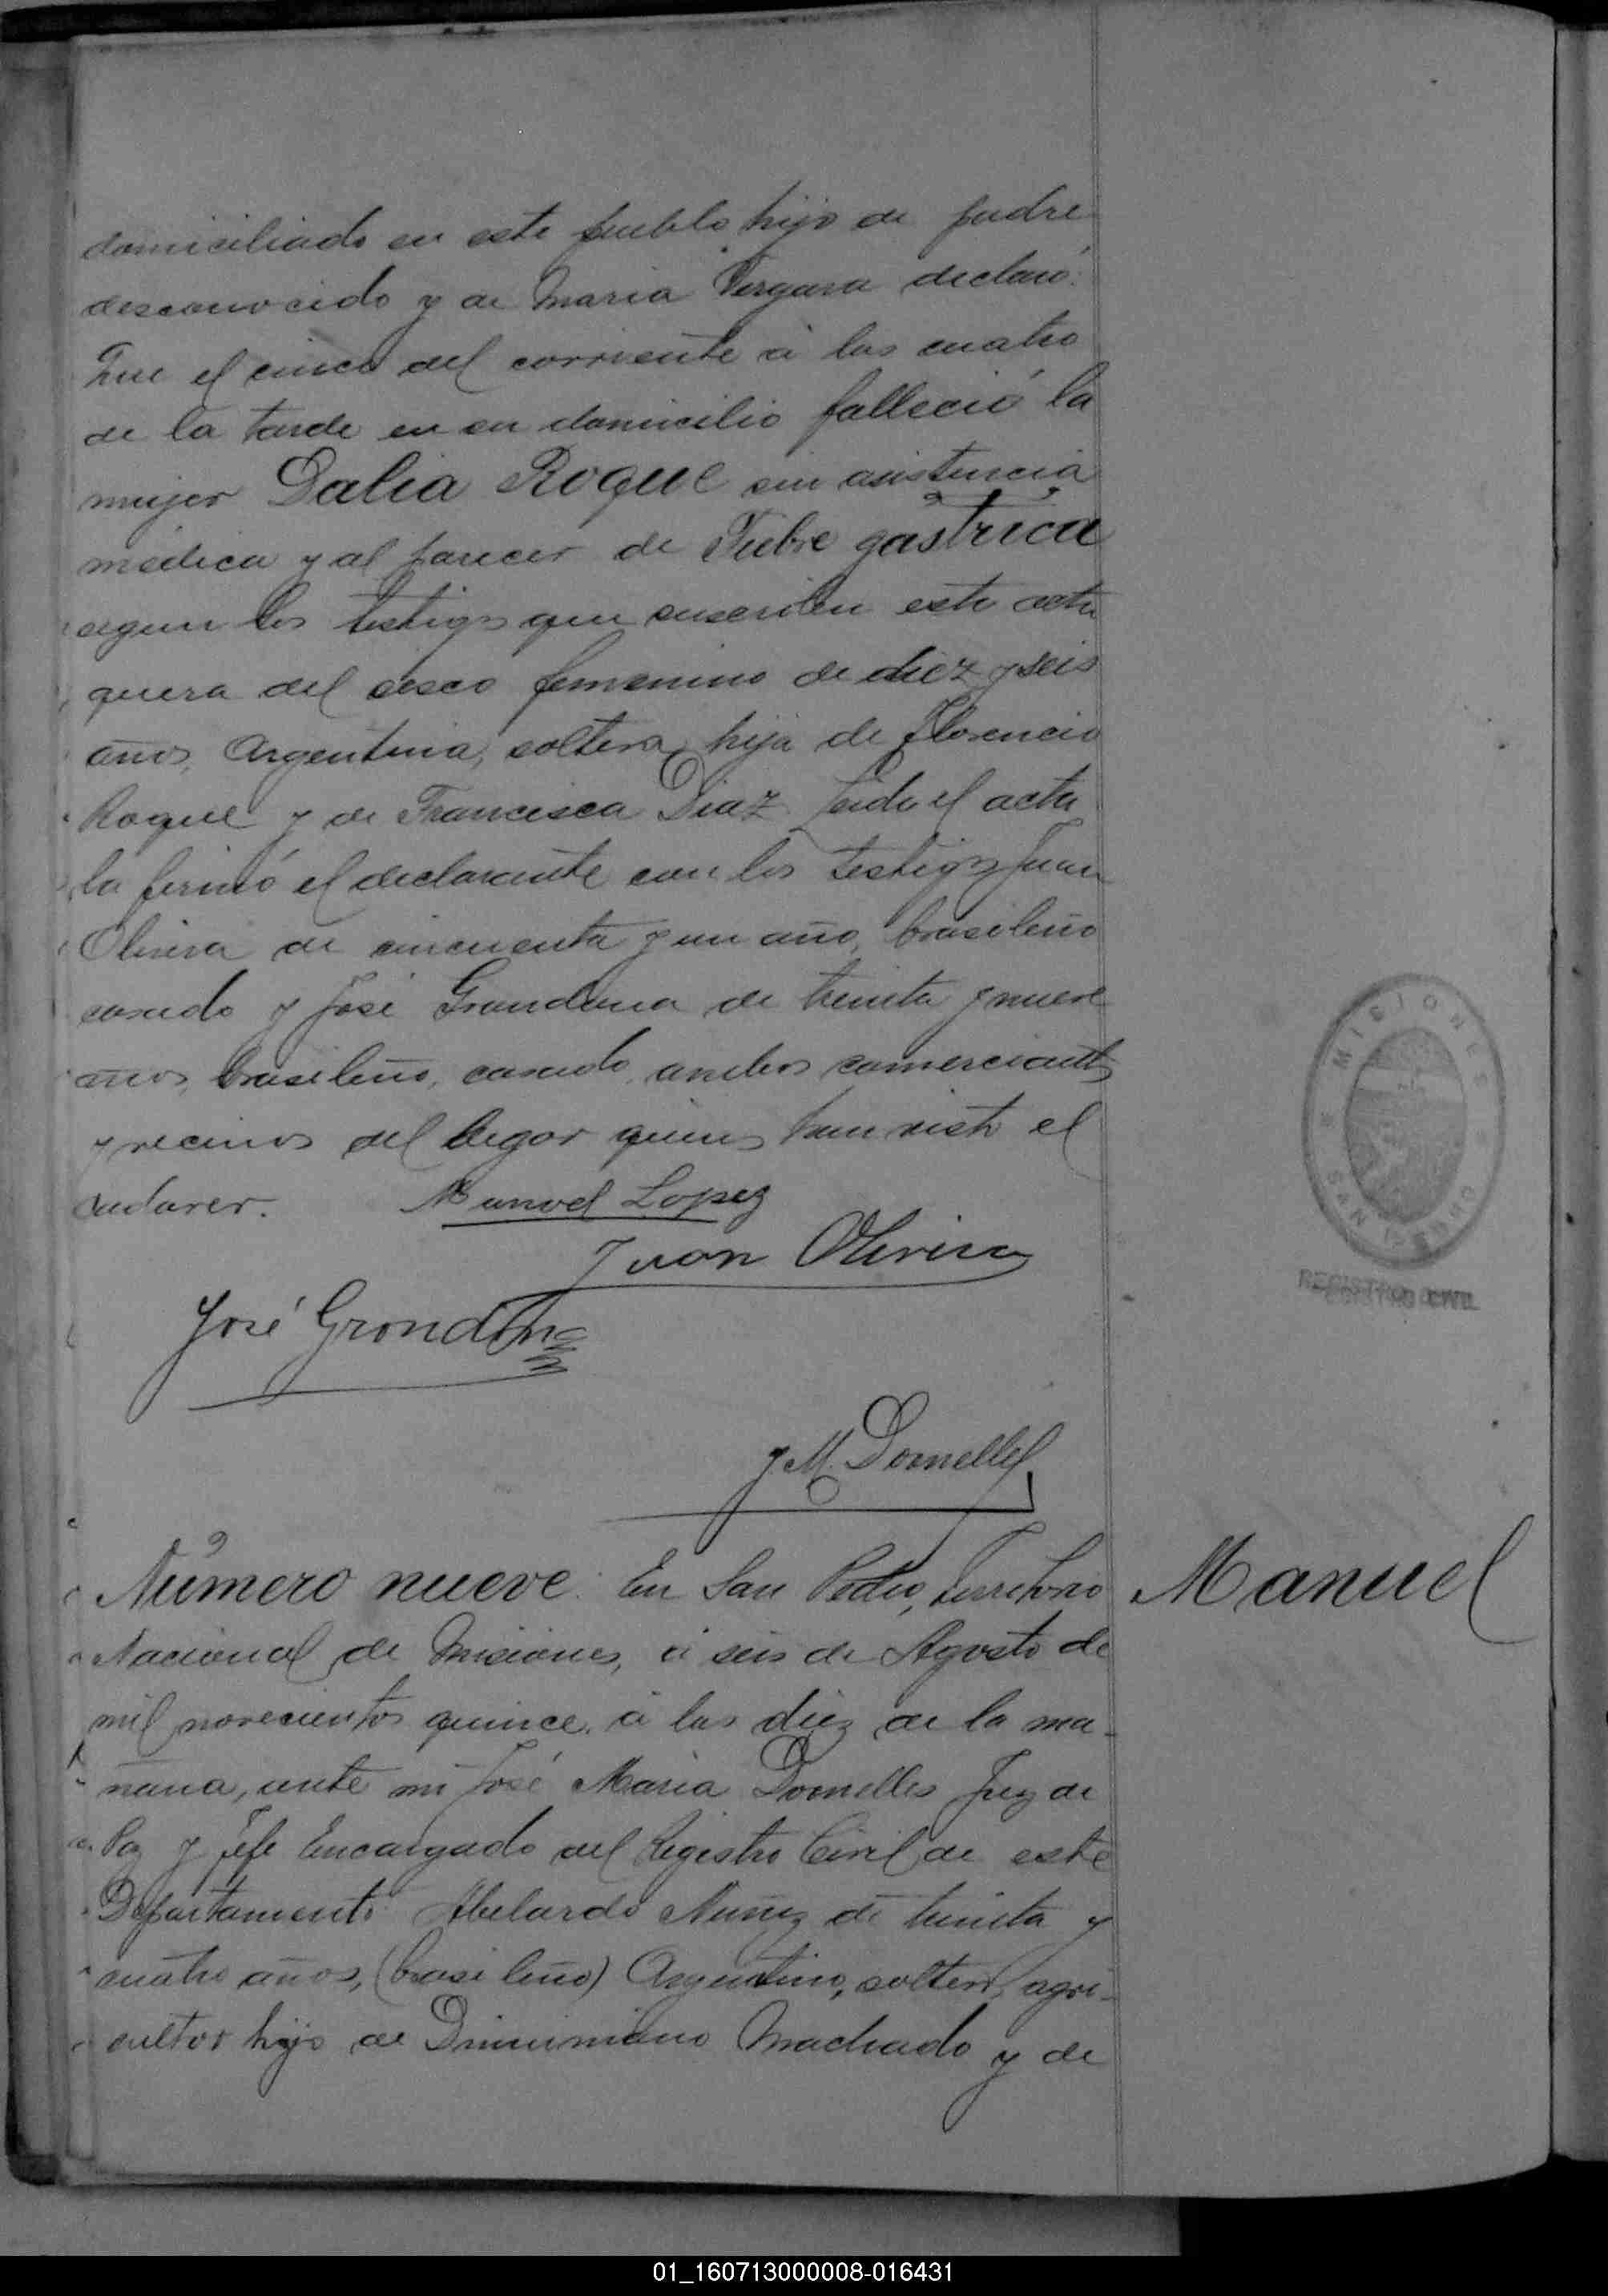 domiciliado en este pueblo hijo de padre
desconocido y de Maria Vergara declaró:
Que el cinco del corriente á las cuatro
de la tarde en su domicilio falleció la
mujer Dalia Roque sin asistencia
médica y al parecer de Fiebre gástrica
segun los testigos que suscriben este acta
quera del sesco femenino de diez y seis
años, Argentina, soltera, hija de Florencio
Roque y de Francisca Diaz Leida el acta
la firmó el declarante con los testigos Juan
Olivera de cincuenta y un año, brasileño
casado y José Grandona de treinta y nueve
años, brasileño, casado, ambos comerciantes
y vecinos del lugar quienes han visto el
cadaver. Manuel Lopez
Juan Olivera
José Grondona
J. M. Dornelles
Número nueve: En San Pedro, Territorio
Manuel
Nacional de Misiones, á seis de Agosto de
mil novecientos quince, á las diez de la ma-
ñana, ante mi José Maria Dornelles Juez de
Paz y Jefe Encargado del Registro Civil de este
Departamento: Abelardo Nuñez de treinta y
cuatro años, (brasileño) Argentino, soltero, agri-
cultor hijo de Machado y de
MISIONES
SAN PEDRO
REGISTRO CIVIL
01_160713000008-016431